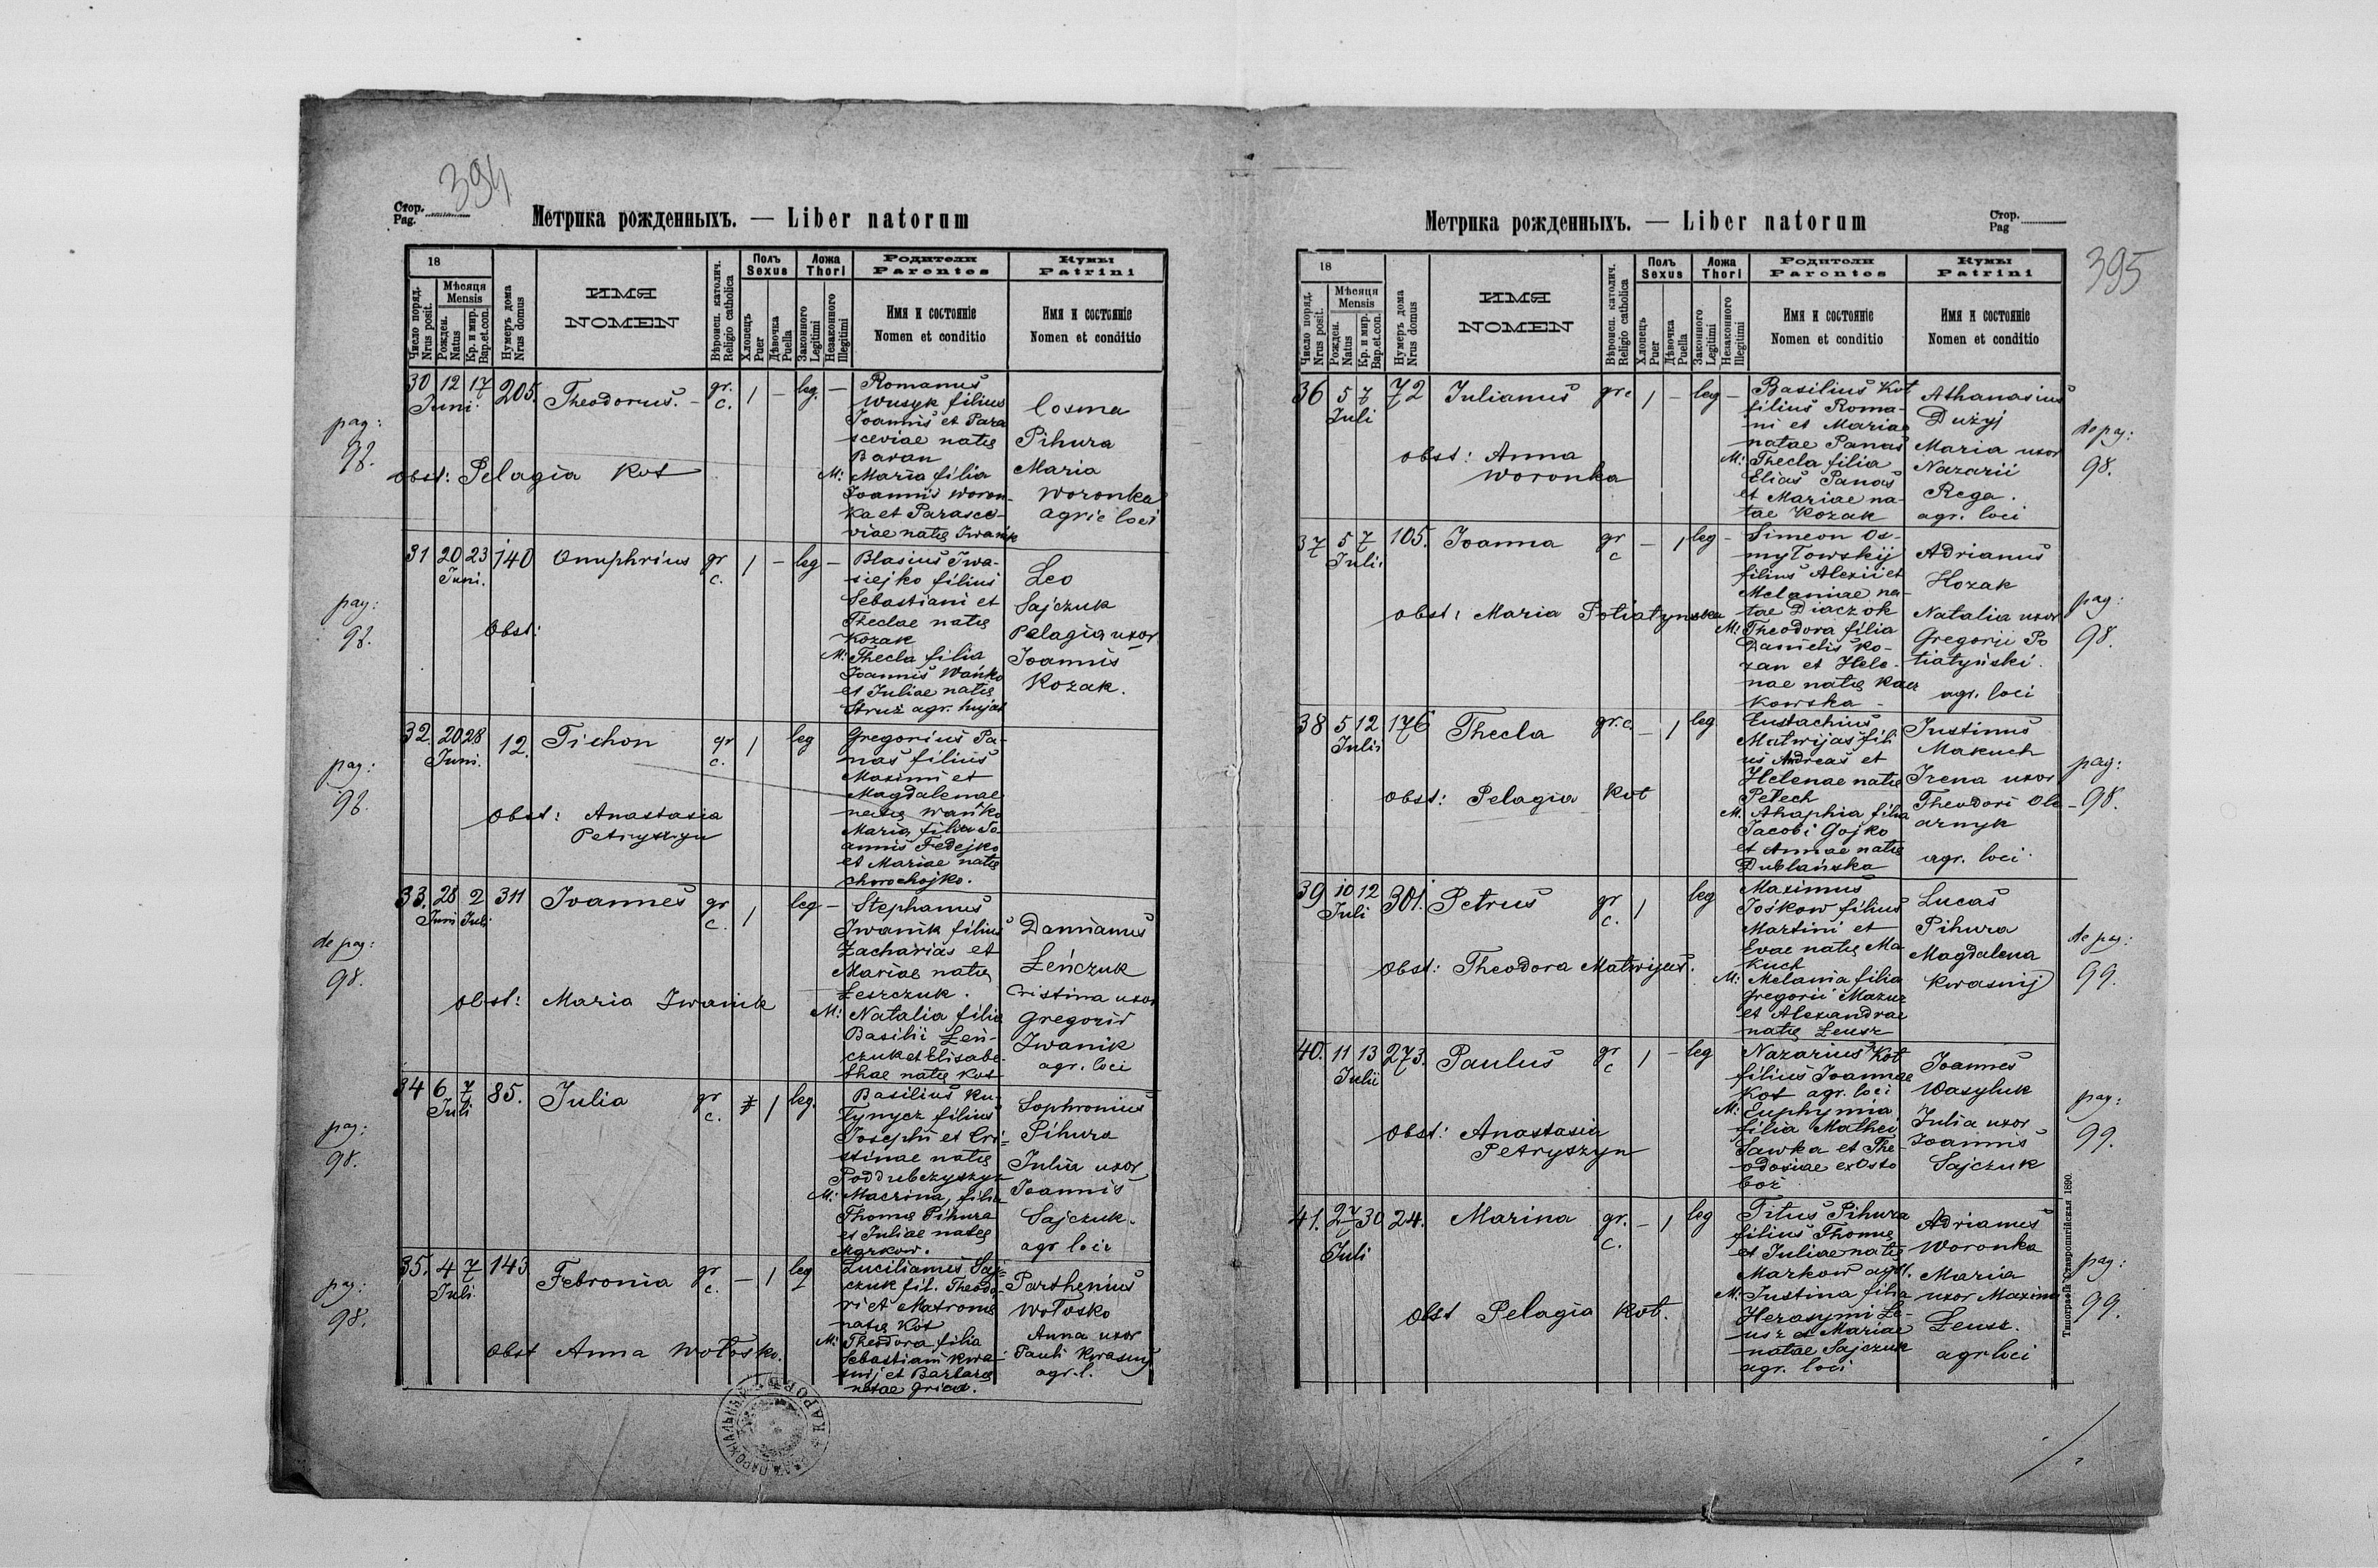 394
Стор.
Pag.
Метрика рожденныхъ. — Liber natorum
18
Число поряд.
Nrus posit.
Мѣсяця
Mensis
Рожден.
Natus
Кр. и мир.
Bap.et.con.
Нумеръ дома
Nrus domus
ИМЯ
NOMEN
Вѣроисп. католич.
Religio catholica
Полъ
Sexus
Хлопець
Puer
Дѣвочка
Puella
Ложа
Thori
Законного
Legitimi
Незаконного
Illegitimi
Родители
Parentes
Имя и состоянiе
Nomen et conditio
Кумы
Patrini
Имя и состоянiе
Nomen et conditio
pag:
98.
30 12 17 205. Theodorus. - gr. c. 1 - leg. -
Juni.
Romanus
Wusyk filius
Joannis et Para
sceviae natę
Baran
M: Maria filia
Joannis Woron-
ka et Parasce-
viae natę Iwanik
Cosma
Pihura
Maria
Woronka
agric loci
obst: Pelagia Kot
pag:
98.
31 20 23 140 Onuphrius gr c. 1 - leg -
Juni.
Blasius Iwa-
siejko filius
Sebastiani et
Theclae natę
Kozak
M: Thecla filia
Joannis Wańko
et Juliae natę
Struż agr. hujat
Leo
Sajczuk
Pelagia uxor
Joannis
Kozak.
Obst:
pag:
98.
32. 20 28 12. Tichon gr c. 1 leg
Juni.
Gregorius Pa-
nas filius
Maximi et
Magdalenae
natę Wańko
Maria filia Jo
annis Fedejko
et Mariae natę
Chorochojko.
Obst: Anastasia
Petryszyn
de pag:
98.
33. 28 2 311 Joannes gr c. 1 leg -
Juni Juli
Stephanus
Iwanik filius
Zacharias et
Mariae natę
Leszczuk.
M: Natalia filia
Basilii Łeń-
czuk et Elisabe-
thae natę Kot
Damianus
Łeńczuk
Cristina uxor
Gregorii
Iwanik
agr. loci
obst: Maria Iwanik
pag:
98.
34 6 7 85. Julia gr c. 1 leg.
Juli
Basilius Ku-
tynycz filius
Josephi et Cri-
stinae natę
Poddubczyszyn
M: Macrina, filia
Thomę Pihura
et Juliae natę
Markow.
Sophronius
Pihura
Julia uxor
Joannis
Sajczuk.
agr loci
pag:
98.
35. 4 7 143 Febronia gr c. - 1 leg
Juli.
Lucilianus Saj-
czuk fil. Theodo-
ri et Matronę
natę Kot
M: Theodora filia
Sebastiani Kwa-
snij et Barbarę
natae
Parthenius
Wołosko
Anna uxor
Pauli Kwasnij
agr. l.
Obst Anna Wołosko.
Метрика рожденныхъ. — Liber natorum
Стор.
Pag
395
18
Число поряд.
Nrus posit.
Мѣсяця
Mensis
Рожден.
Natus
Кр. и мир.
Bap.et.con.
Нумеръ дома
Nrus domus
ИМЯ
NOMEN
Вѣроисп. католич.
Religio catholica
Полъ
Sexus
Хлопець
Puer
Дѣвочка
Puella
Ложа
Thori
Законного
Legitimi
Незаконного
Illegitimi
Родители
Parentes
Имя и состоянiе
Nomen et conditio
Кумы
Patrini
Имя и состоянiе
Nomen et conditio
36 5 7 72 Julianus gr c 1 - leg -
Juli
Basilius Kot
filius Roma-
ni et Mariae
natae Panas
M: Thecla filia
Elias Panas
et Mariae na-
tae Kozak
Athanasius
Dużyj
Maria uxor
Nazarii
Rega.
agr. loci
obst: Anna
Woronka
de pag:
98.
37 5 7 105. Joanna gr c - 1 leg -
Juli.
Simeon Os-
myłowskij
filius Alexii et
Melaniae na-
tae Diaczok
M: Theodora filia
Danielis Ko-
zan et Hele-
nae natę Kacz
kowska -
Adrianus
Hozak
Natalia uxor
Gregorii Po
tiatyński.
agr. loci
obst: Maria Potiatynska
pag:
98.
38 5 12 176 Thecla gr.c. - 1 leg
Juli
Eustachius
Matwijas fili
us Andreas et
Helenae natę
Pełech
M. Ahaphia filia
Jacobi Gojko
et Annae natę
Dublańska
Justinus
Makuch
Irena uxor
Theodori Ole-
arnyk
agr. loci.
obst: Pelagia Kot
pag:
98.
39 10 12 301. Petrus gr c. 1 leg
Juli
Maximus
Jośkow filius
Martini et
Evae natę Ma
kuch
M: Melania filia
Gregorii Mazur
et Alexandrae
natę Łeusz
Lucas
Pihura
Magdalena
Kwasnij
obst: Theodora Matwijas.
de pag:
99.
40. 11 13 273. Paulus gr c 1 - leg
Julii
Nazarius Kot
filius Joannae
Kot agr. loci
M: Euphymia
filia Mathei
Sawka et The-
odosiae ex Osto
boż
Joannes
Wasyluk
Julia uxor
Joannis
Sajczuk
Obst: Anastasia
Petryszyn
pag:
99.
41. 27 30 24. Marina gr. c. - 1 leg
Juli
Titus Pihura
filius Thomę
et Juliae natę
Markow agrl.
M: Justina filia
Herasymi Łe-
usz et Mariae
natae Sajczuk
agr. loci
Adrianus
Woronka
Maria
uxor Maximi
Łeusz.
agr loci
Obst Pelagia Kot.
pag:
99.
Типографiя Ставропигiйская 1890